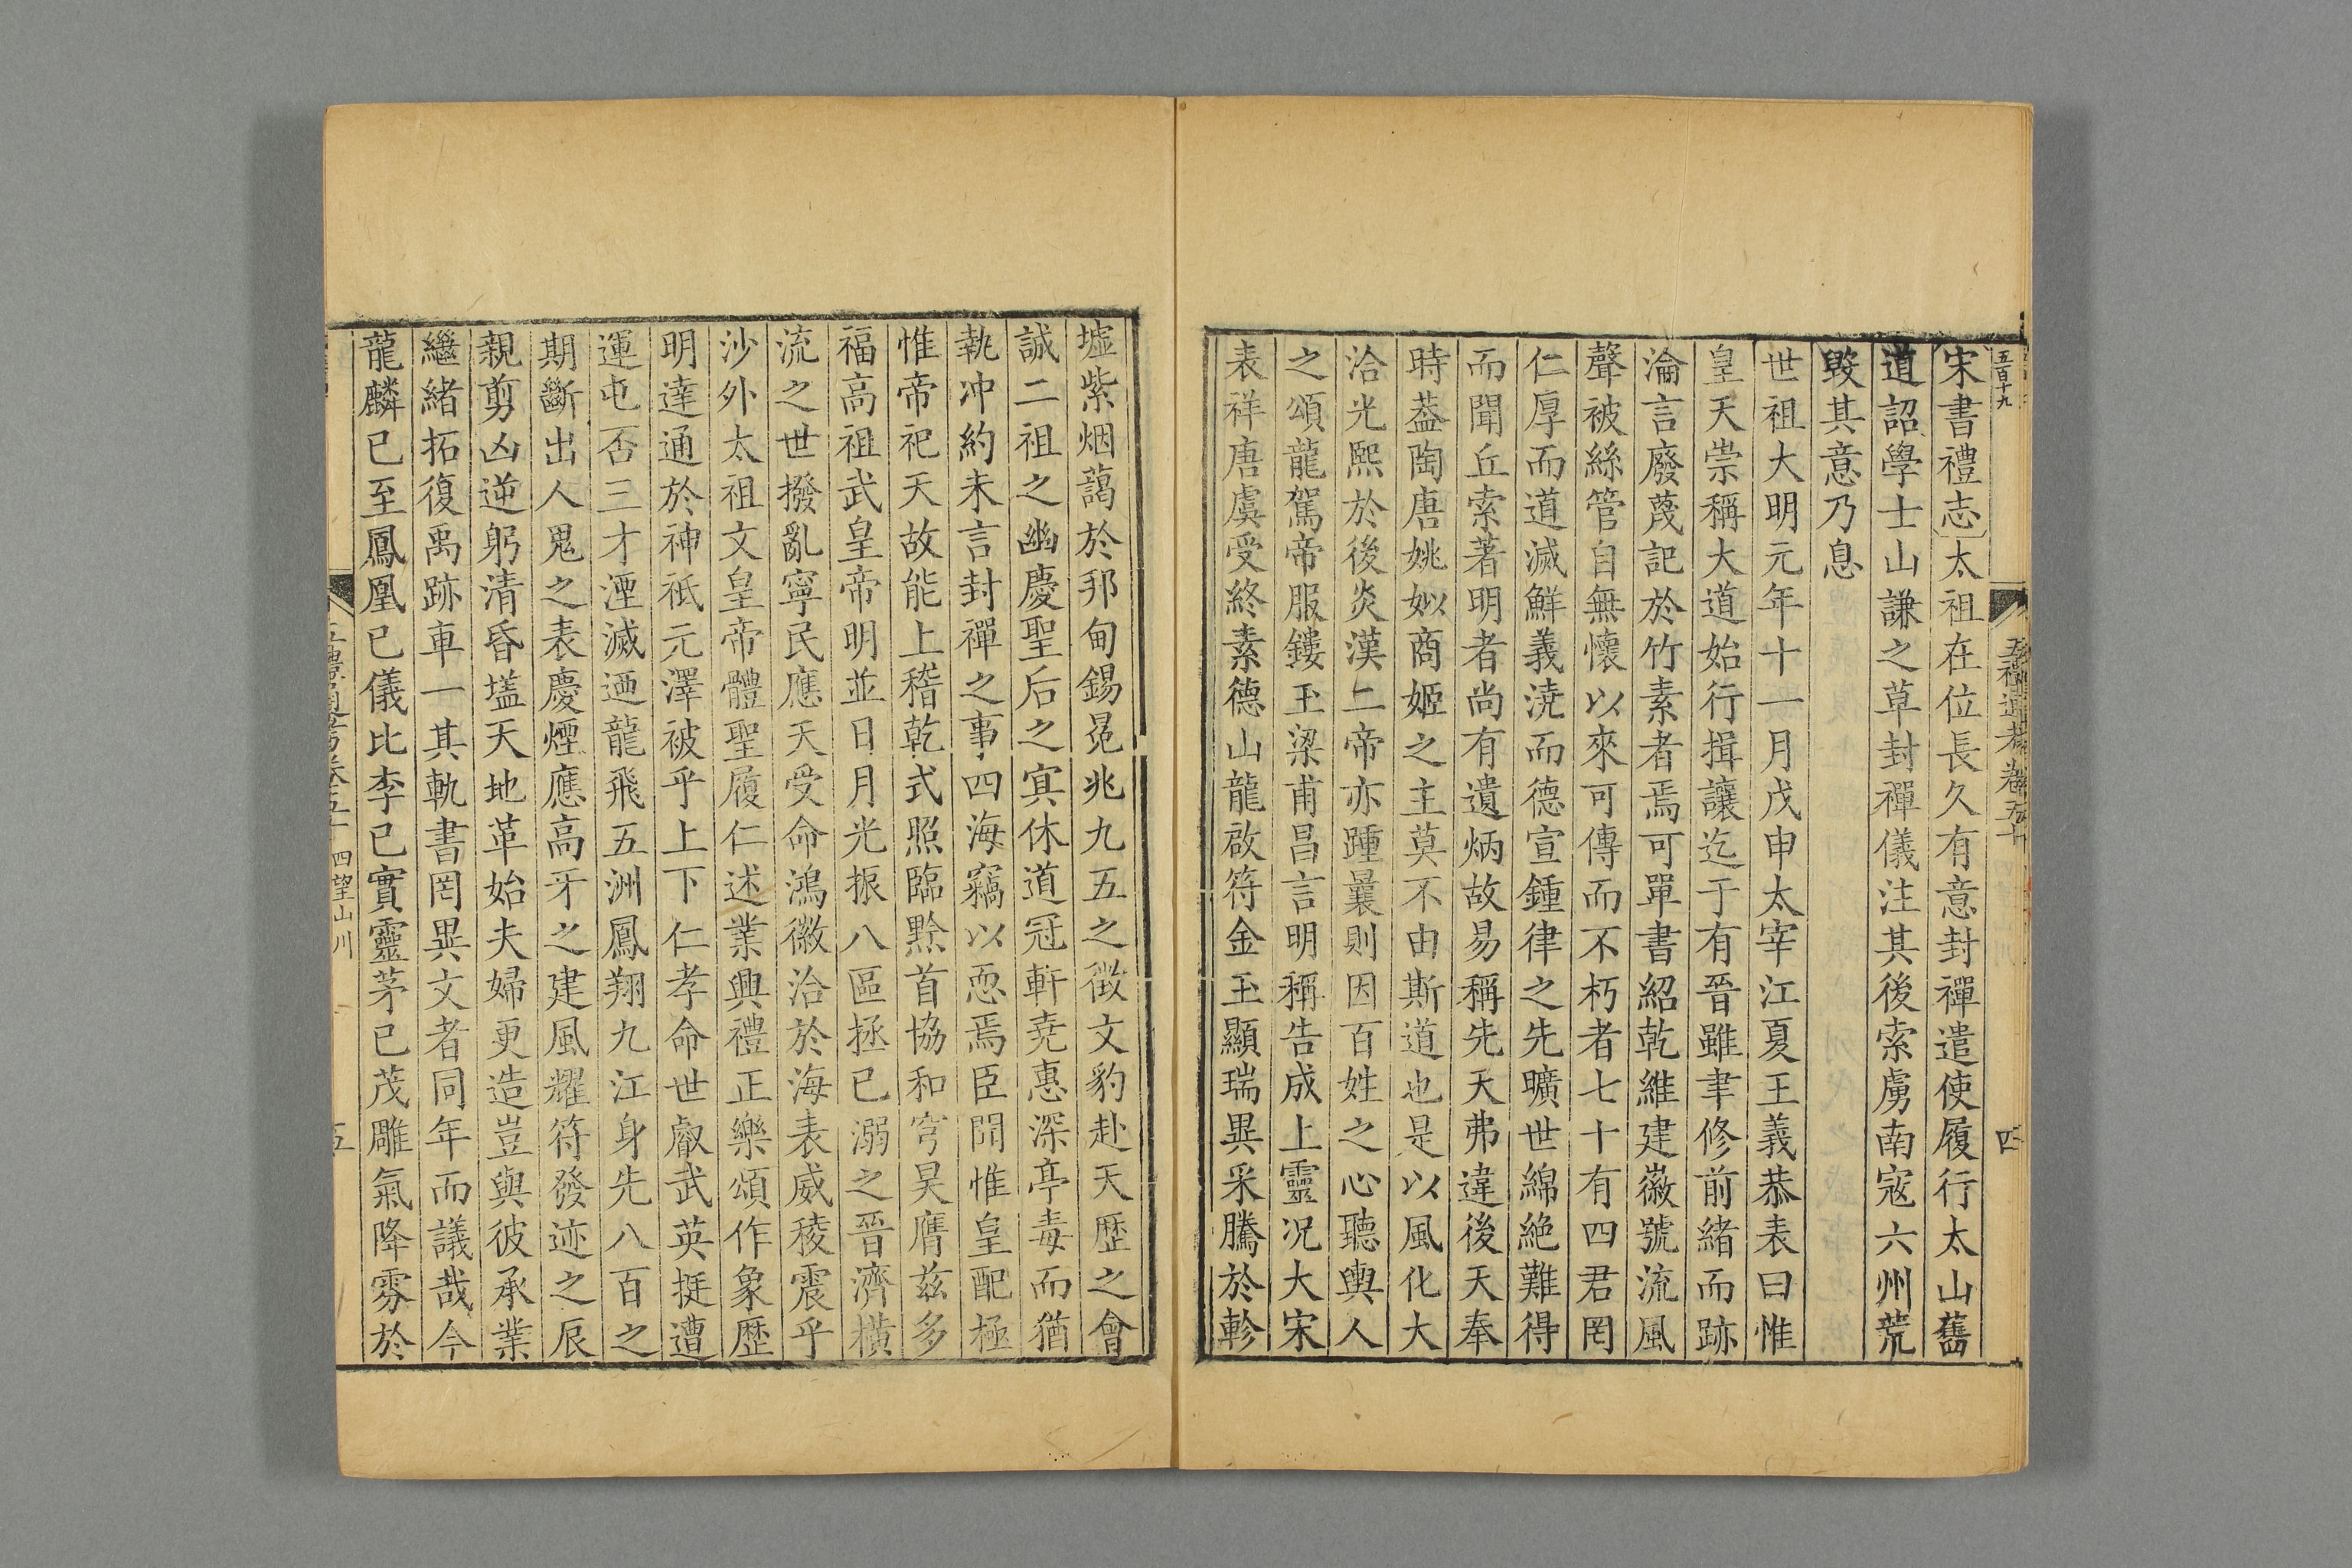 五百十九
五禮通考卷五十
四
宋書禮志太祖在位長久有意封禪遣使履行太山舊
道詔學士山謙之草封禪儀注其後索虜南寇六州荒
毀其意乃息
世祖大明元年十一月戊申太宰江夏王義恭表曰惟
皇天崇稱大道始行揖讓迄于有晉雖聿修前緒而跡
淪言廢蔑記於竹素者焉可單書紹乾維建徽號流風
聲被絲管自無懷以來可傳而不朽者七十有四君罔
仁厚而道滅鮮義澆而德宣鍾律之先曠世綿絶難得
而聞丘索著明者尚有遺炳故易稱先天弗違後天奉
時葢陶唐姚姒商姬之主莫不由斯道也是以風化大
洽光熙於後炎漢二帝亦踵曩則因百姓之心聽輿人
之頌龍駕帝服鏤玉梁甫昌言明稱告成上靈况大宋
表祥唐虞受終素德山龍啟符金玉顯瑞異采騰於軫
墟紫烟藹於邦甸錫冕兆九五之徴文豹赴天歷之會
誠二祖之幽慶聖后之㝠休道冠軒堯惠深亭毒而猶
執冲約未言封禪之事四海竊以恧焉臣聞惟皇配極
惟帝祀天故能上稽乾式照臨黔首協和穹昊膺兹多
福高祖武皇帝明並日月光振八區拯已溺之晉濟横
流之世撥亂寧民應天受命鴻徽洽於海表威稜震乎
沙外太祖文皇帝體聖履仁述業興禮正樂頌作象歷
明達通於神祇元澤被乎上下仁孝命世叡武英挺遭
運屯否三才湮滅迺龍飛五洲鳳翔九江身先八百之
期斷出人鬼之表慶煙應高牙之建風耀符發迹之辰
親剪凶逆躬清昏壒天地革始夫婦更造豈與彼承業
繼緒拓復禹跡車一其軌書罔異文者同年而議哉今
龍麟已至鳳凰已儀比李已實靈茅已茂雕氣降雰於
五禮通考卷五十
四望山川
五